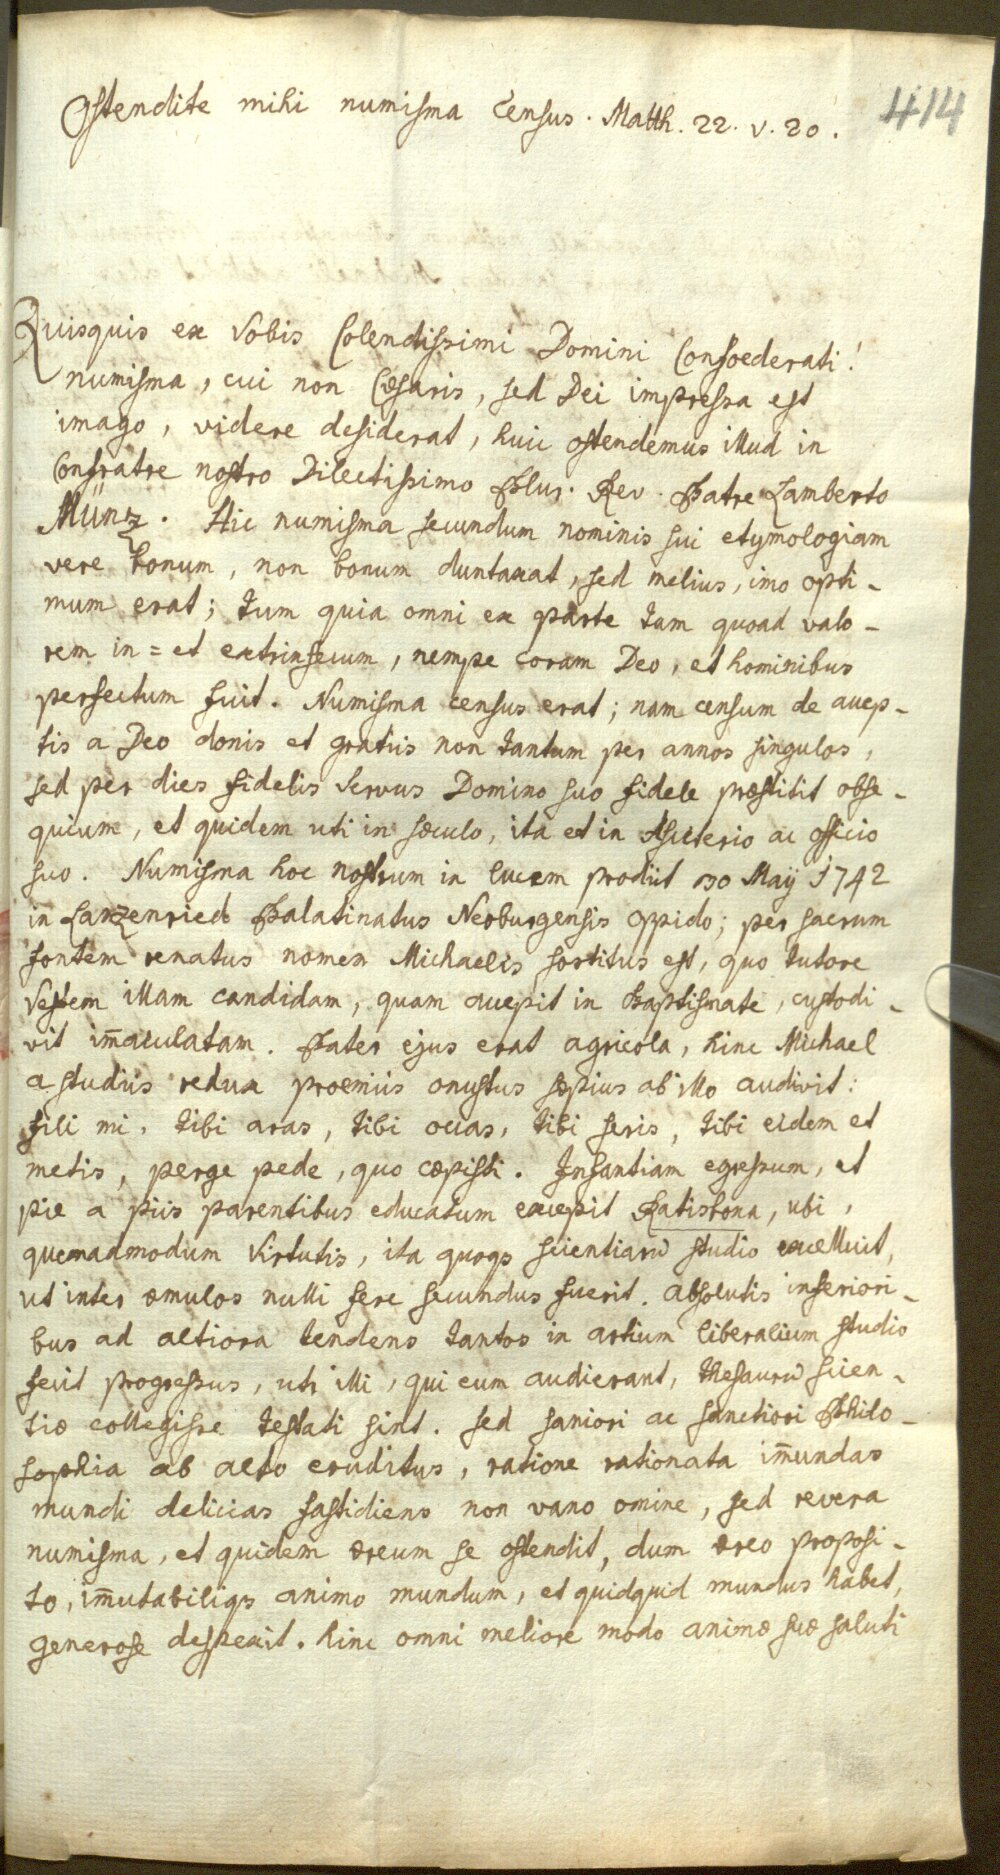 Ostendite mihi numisma Census. Matth. 22. v. 20.
414
Quisquis ex Vobis Colendissimi Domini Confoederati!
numisma, cui non Cæsaris, sed Dei impressa est
imago, videre desiderat, huic ostendemus illud in
Confratre nostro Dilectissimo Plur. Rev. Patre Lamberto
Münz. Hic numisma secundum nominis sui etymologiam
vere bonum, non bonum duntaxat, sed melius, imo opti-
mum erat; tum quia omni ex parte tam quoad valo-
rem in= et extrinsecum, nempe coram Deo, et hominibus
perfectum fuit. Numisma census erat; nam censum de accep-
tis a Deo donis et gratiis non tantum per annos singulos,
sed per dies fidelis Servus Domino suo fidele præstitit obse-
quium, et quidem uti in sæculo, ita et in Asceterio ac officio
suo. Numisma hoc nostrum in lucem prodiit 30 Maÿ 1742
in Lanzenried Palatinatus Neoburgensis oppido; per sacrum
fontem renatus nomen Michaelis sortitus est, quo tutore
Vestem illam candidam, quam accepit in Baptismate, custodi-
vit im̄aculatam. Pater ejus erat agricola, hinc Michael
a studiis redux proemiis onustus sæpius ab illo audivit:
fili mi, tibi aras, tibi occas, tibi seris, tibi eidem et
metis, perge pede, quo cæpisti. Infantiam egressum, et
pie a piis parentibus educatum excepit Ratisbona, ubi,
quemadmodum Virtutis, ita quoqs scientiarū studio excelluit,
ut inter æmulos nulli fere secundus fuerit. absolutis inferiori-
bus ad altiora tendens tantos in artium liberalium studio
fecit progressus, uti illi, qui eum audierant, thesaurū scien-
tiæ collegisse testati sint. sed saniori ac sanctiori Philo-
sophia ab alto eruditus, ratione rationata im̄undas
mundi delicias fastidiens non vano omine, sed revera
numisma, et quidem æreum se ostendit, dum æreo proposi-
to, im̄utabiliqs animo mundum, et quidquid mundus habet,
generose despexit. hinc omni meliore modo animæ suæ saluti